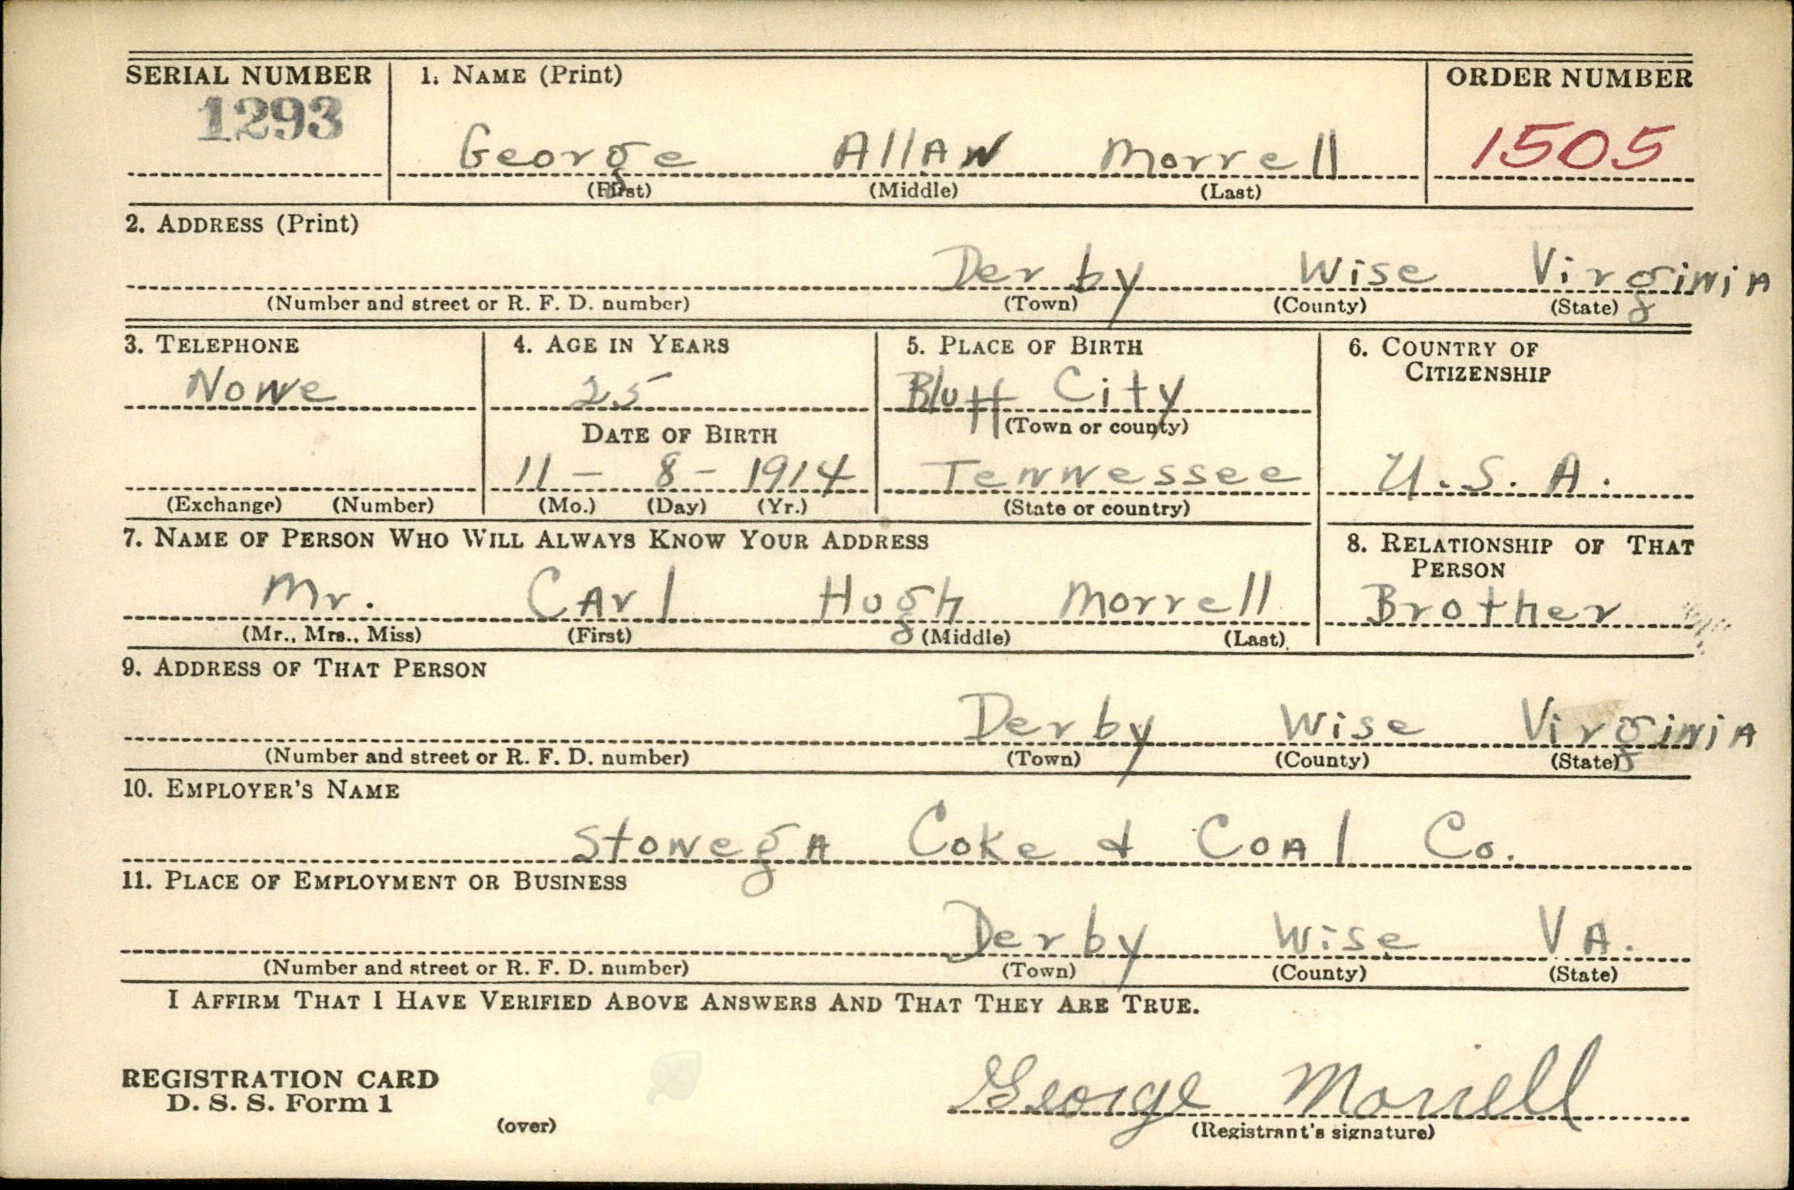 SERIAL NUMBER 1. NAME (Print) ORDER NUMBER
1293 George Allan Morrell 1505
(First) (Middle) (Last)
2. ADDRESS (Print)
Derby Wise Virginia
(Number and street or R. F. D. number) (Town) (County) (State)
3. TELEPHONE 4. AGE IN YEARS 5. PLACE OF BIRTH 6. COUNTRY OF CITIZENSHIP
None 25 Bluff City
(Town or county)
DATE OF BIRTH
11 - 8 - 1914 Tennessee U.S.A.
(Exchange) (Number) (Mo.) (Day) (Yr.) (State or country)
7. NAME OF PERSON WHO WILL ALWAYS KNOW YOUR ADDRESS 8. RELATIONSHIP OF THAT PERSON
Mr. Carl Hugh Morrell Brother
(Mr., Mrs., Miss) (First) (Middle) (Last)
9. ADDRESS OF THAT PERSON
Derby Wise Virginia
(Number and street or R. F. D. number) (Town) (County) (State)
10. EMPLOYER'S NAME
Stonega Coke & Coal Co.
11. PLACE OF EMPLOYMENT OR BUSINESS
Derby Wise VA.
(Number and street or R. F. D. number) (Town) (County) (State)
I AFFIRM THAT I HAVE VERIFIED ABOVE ANSWERS AND THAT THEY ARE TRUE.
REGISTRATION CARD George Morrell
D. S. S. Form 1
(over) (Registrant's signature)